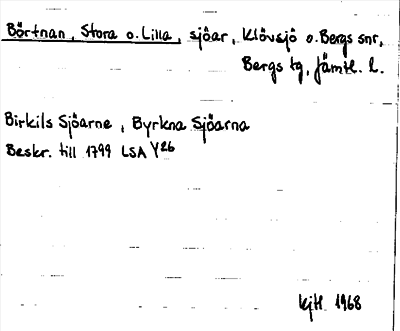 Börtnan, Stora o. Lilla, sjöar, Klövsjö o. Bergs snr,
Bergs tg, Jämtl. l.
Birkils Sjöarne, Byrkna Sjöarna
Beskr. till 1799 LSA Y26
1968